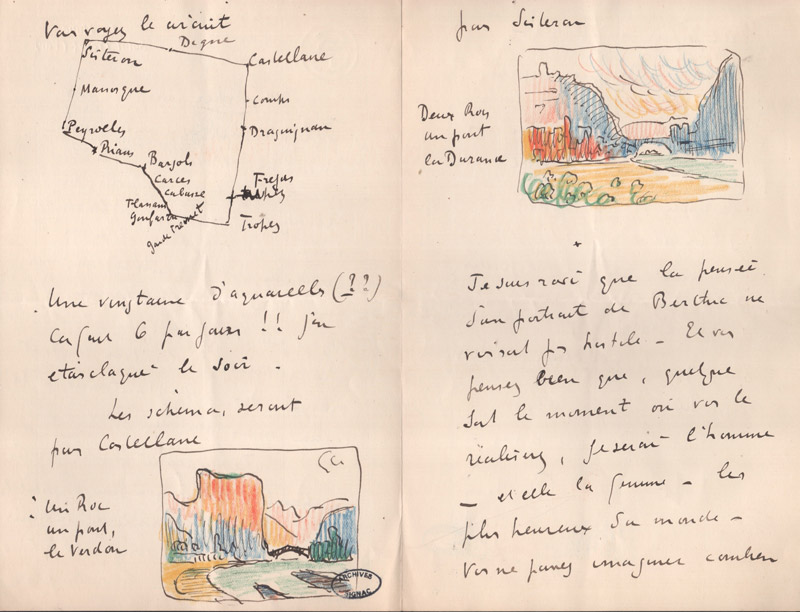 Vous voyez le circuit
Digne
Sisteron
Castellane
Manosque
Comps
Peyrolles
Draguignan
Rians
Barjols
Carces
Cabasse
Frejus
Flassans
Gonfaron
Garde Freinet
Tropez
Une vingtaine d'aquarelles (??)
Ça fait 6 par jour !! j'en
étais claqué le soir -
Les schémas, seront
pour Castellane
: Un Roc
un pont,
le Verdon
ARCHIVES
SIGNAC
pour Sisteron
Deux Rocs
un pont
la Durance
+
Je suis ravi que la pensée
d'un portrait de Berthe ne
vous soit pas hostile - Et vous
pensez bien que, quelque
soit le moment où vous le
réaliserez, je serai l'homme
- et elle la femme - les
plus heureux du monde -
Vous ne pouvez imaginer combien